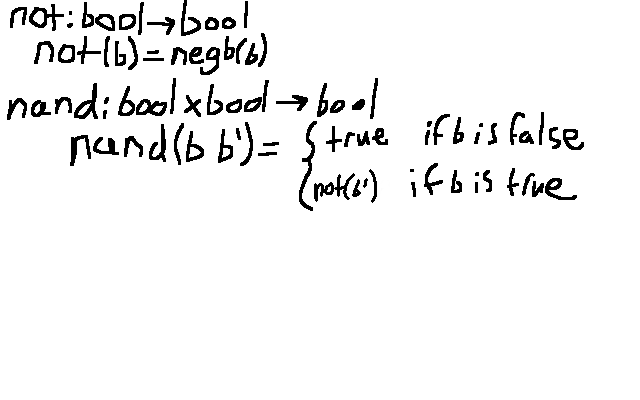 not: bool → bool
not(b) = negb(b)
nand: bool × bool → bool
nand(b b') = { true if b is false
not(b') if b is true